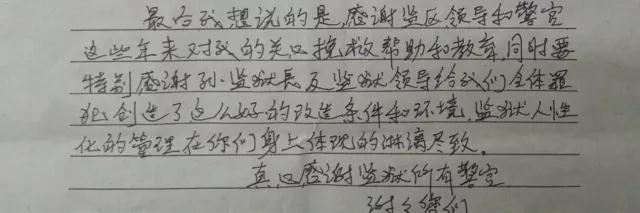 最后我想说的是感谢监区领导和警官
这些年来对我的关心挽救帮助和教育，同时要
特别感谢孙监狱长及监狱领导给我们全体罪
犯创造了这么好的改造条件和环境，监狱人性
化的管理在你们身上体现的淋漓尽致。
真心感谢监狱所有警官
谢谢你们